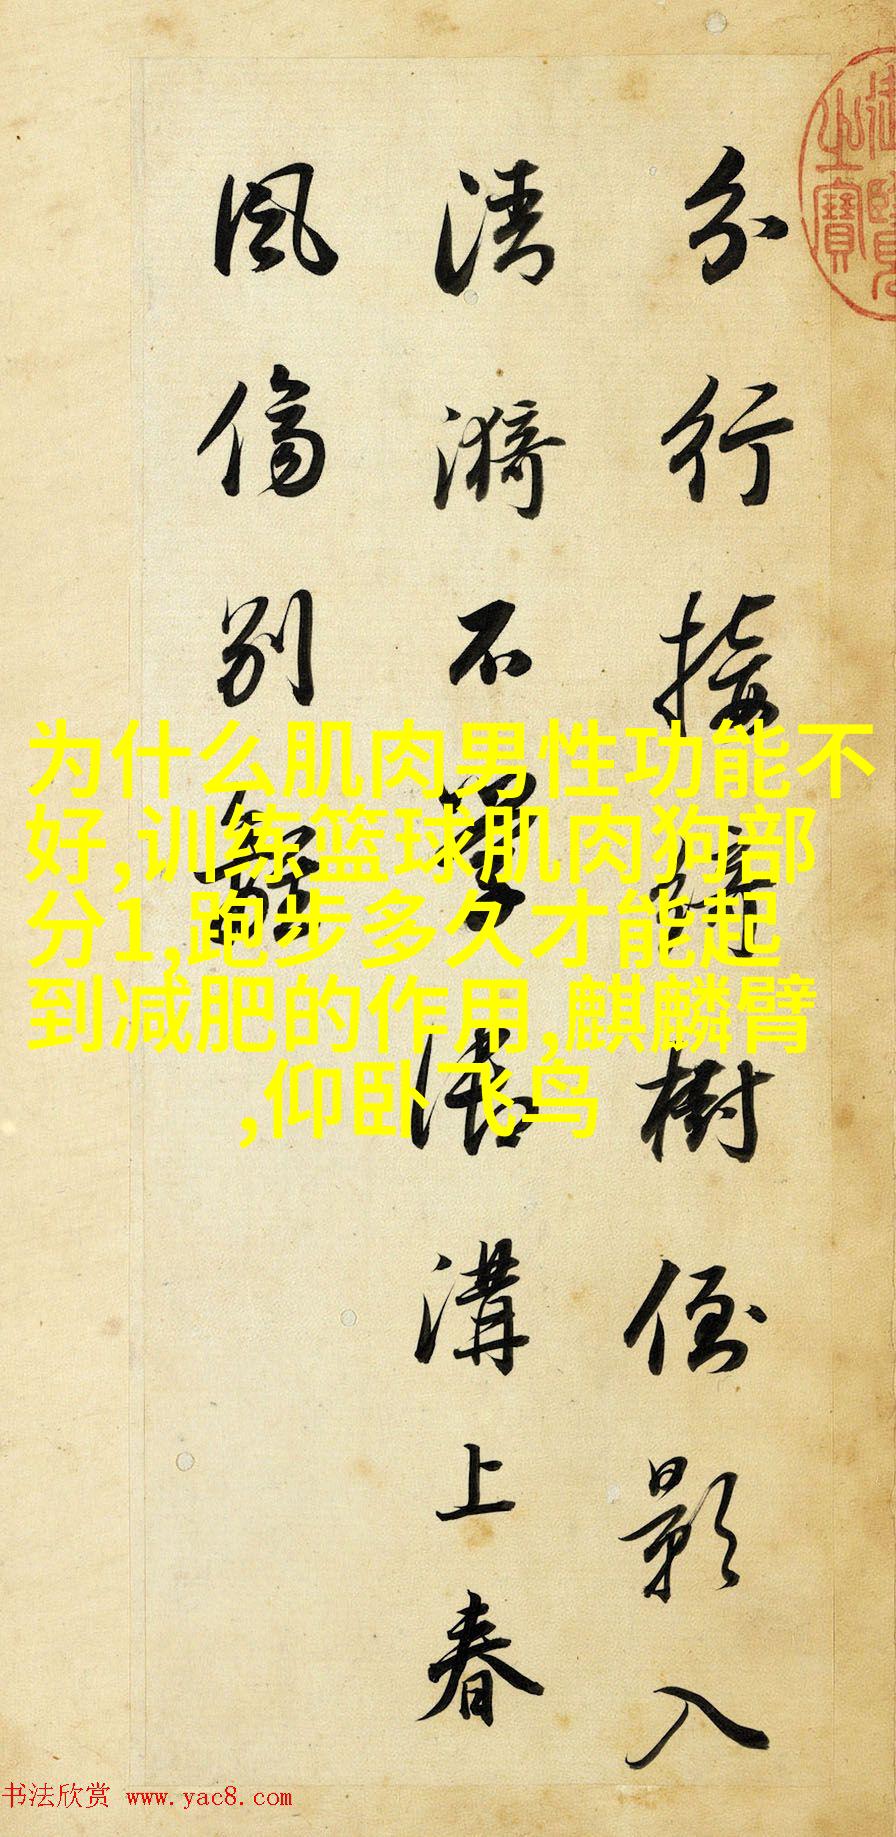 分行接綺樹倒影入
清漪不學御溝上春
風傷別離
御覽
之寶
为什么肌肉男性功能不
好,训练篮球肌肉狗部
分1,跑步多久才能起
到减肥的作用,麒麟臂
,仰卧飞鸟
书法欣赏 www.yac8.com